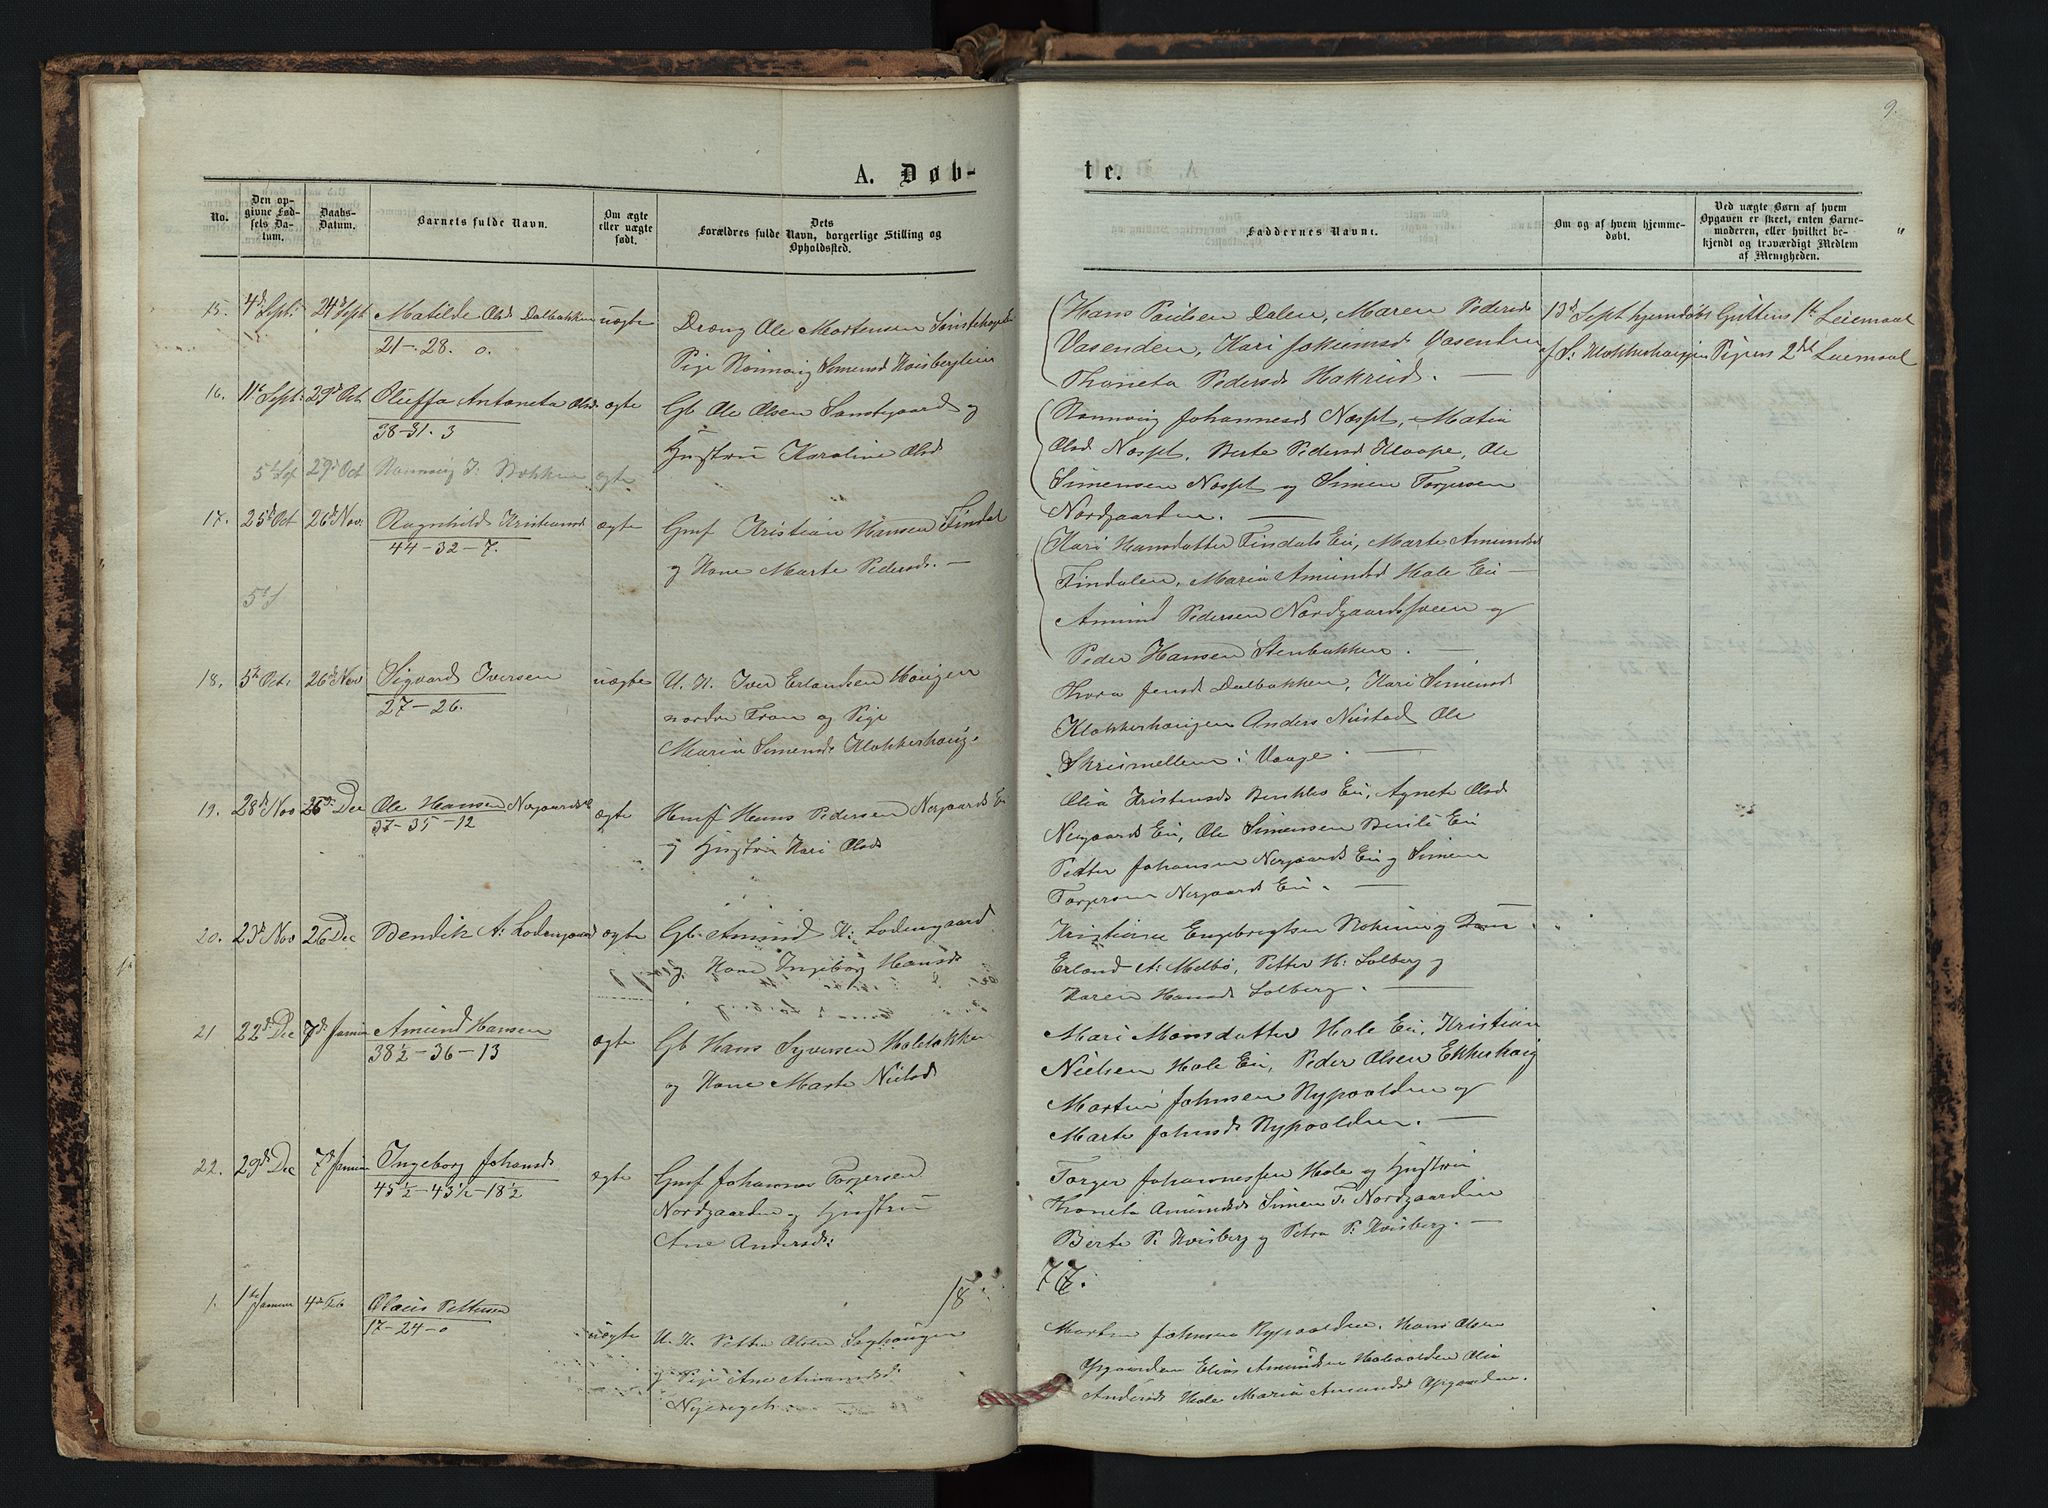 9.
A. Døb-
te.
No.
Den op-
givne Fød-
sels Da-
tum.
Daabs-
Datum.
Barnets fulde Navn.
Om ægte
eller uægte
født.
Dets
Forældres fulde Navn, borgerlige Stilling og
Opholdssted.
Faddernes Navne.
Om og af hvem hjemme-
døbt.
Ved uægte Børn af hvem
Opgaven er skeet, enten Barne-
moderen, eller hvilket be-
kjendt og troværdigt Medlem
af Menigheden.
15. 4de Sept. 24de Sept Matilde Olsd Dalbakken uægte
21-28. 0.
Dreng Ole Mortensen
Pige Rønnoug Simensd
Hans Paulsen Dalen, Maren Pedersd
Vasenden, Kari Jokumsd Vasenden
Thoneta Pedersd Hakrud.
13de Sept hjemdøbt
af S. Klokkerhaugen
Guttens 1te Leiemaal
Pigens 2det Leiemaal
16. 11te Sept. 29de Oct Oluffa Antoneta Olsd ægte
38-31. 3
Gb Ole Olsen Sanstgaard og
Hustru Karoline Olsd
Rønnoug Johannesd Næsset, Matia
Olsd Næsset, Berte Pedersd Klaape, Ole
Simensen Næsset og Simen Torgersen
Nordgaarden.
5te Sep 29de Oct Rønnoug J. Bakken ægte
17. 25de Oct 26de Nov. Ragnhild Kristiansd ægte
44-32-7.
Gmf Kristian Hansen Tindal
og Kone Marte Pedersd.
Kari Hansdatter Tindals Ei, Marte Amundsd
Tindalen, Maria Amundsd Hole Ei
Amund Pedersen Nordgaardssveen og
Peder Hansen Stenbakken.
18. 5te Oct. 26de Nov Sigvard Iversen uægte
27-26.
U. K. Iver Erlandsen Haugen
nordre Fron og Pige
Maria Simensd Klokkerhaug.
Thora Jensd Dalbakken, Kari Simensd
Klokkerhaugen Anders Nustad Ole
i Vaage.
19. 28de Nov 26de Dec Ole Hansen ægte
37-35-12
Hmf Hans Pedersen Nergaards Ei
og Hustru Kari Olsd
Olia Kristensd Ei, Agnete Olsd
Nergaards Ei, Ole Simensen Ei
Petter Johansen Nergaards Ei og Simen
Torgersen Nergaards Ei.
20. 23de Nov 26 Dec Bendik A. Lodengaard ægte
Gb. Amund K. Lodengaard
og Kone Ingeborg Hansd
Kristiane Engebrigtsen
Erland A. Melbø, Petter H. Solberg og
Karen Hansd Solberg.
21 22de Dec 7de Januar Amund Hansen ægte
38½-36-13
Gb Hans Syversen Holeløkken
og Kone Marte Nielsd
Mari Monsdatter Hole Ei, Kristian
Nielsen Hole Ei, Peder Olsen Ekkerhaug
Martin Johnsen Rypaalden og
Marte Johnsd Rypaalden.
22. 29de Dec 7de Januar Ingeborg Johansd ægte
45½-43½-18½
Gmf Johannes Torgersen
Nordgaarden og Hustru
Ane Andersd.
Torger Johannessen Hole og Hustru
Thoneta Amundsd Simen T. Nordgaarden
Berte P. Kvisberg og Petra P. Kvisberg.
18
77.
1. 1te Januar 4de Feb Olaus Pettersen uægte
17-24-0
U. K. Petter Olsen Laghaugen
og Pige Ane Amundsd
Martin Johnsen Rypaalden, Hans Olsen
Opgaarden Elias Amundsen Holeaalden Olia
Andersd Hole Maria Amundsd Opgaarden.